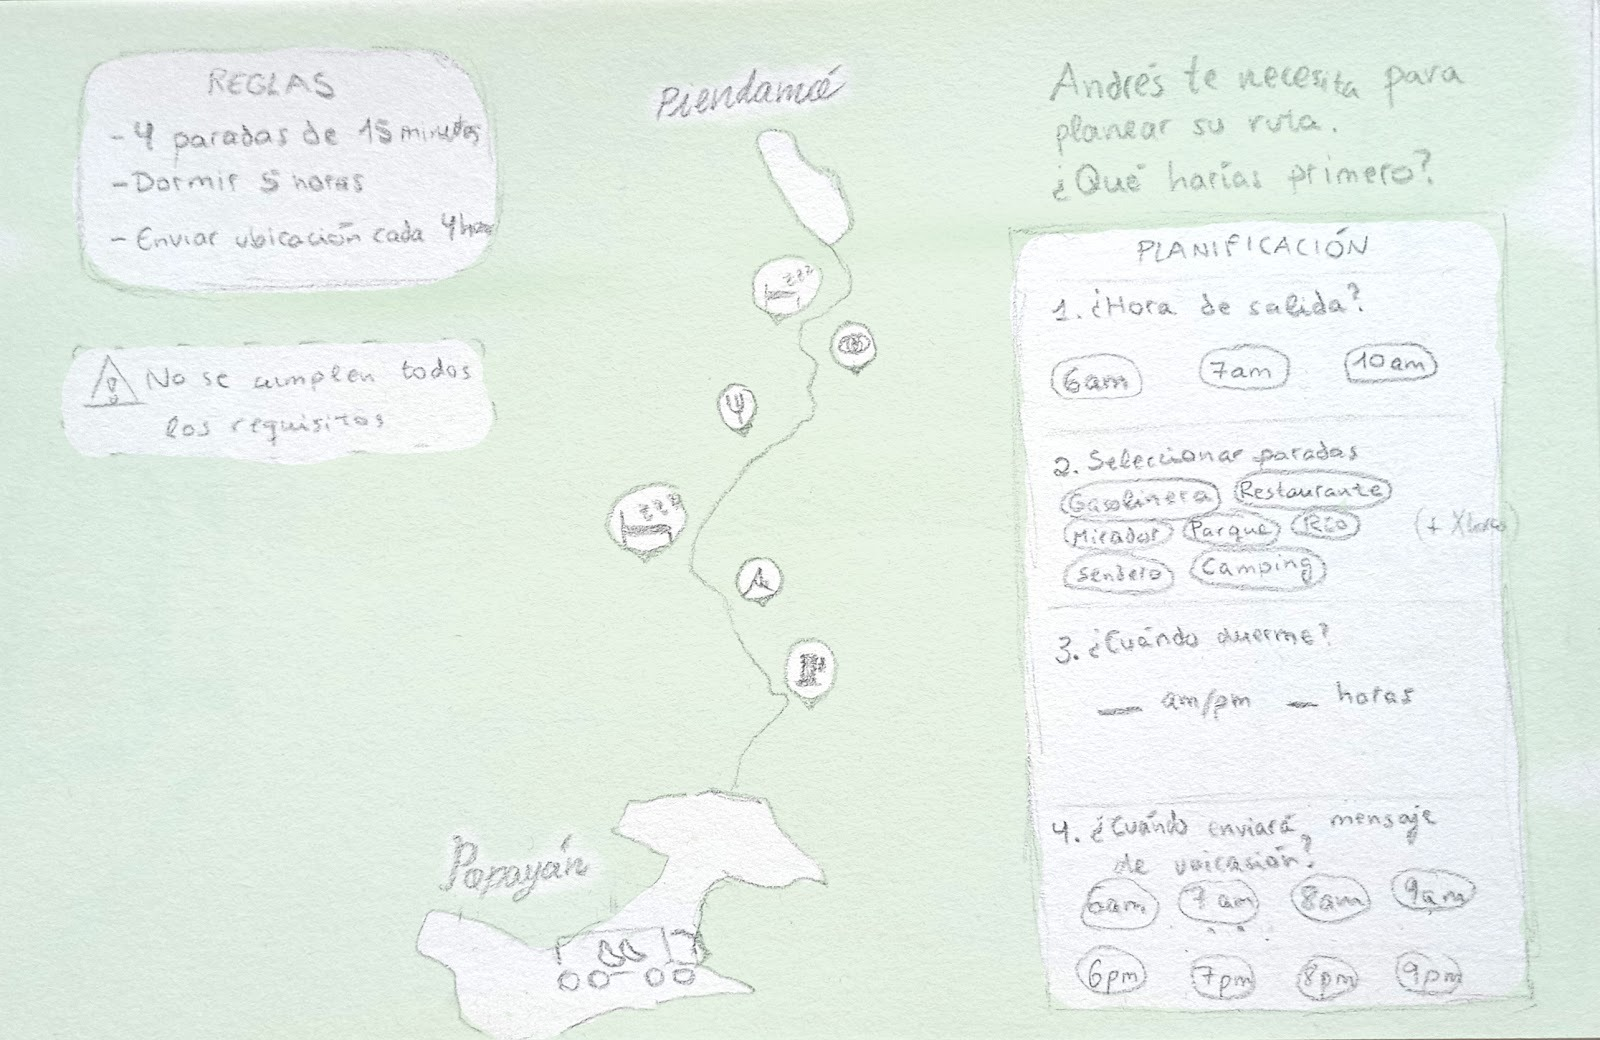 REGLAS
- 4 paradas de 15 minutos
- Dormir 5 horas
- Enviar ubicación cada 4 horas
No se cumplen todos
los requisitos
Piendamó
zzz
zzz
Popayán
Andrés te necesita para
planear su ruta.
¿Qué harías primero?
PLANIFICACIÓN
1. ¿Hora de salida?
6am 7am 10am
2. Seleccionar paradas
Gasolinera Restaurante
Mirador Parque Río
Sendero Camping
3. ¿Cuándo duerme?
__ am/pm __ horas
4. ¿Cuándo enviará mensaje
de ubicasión?
6am 7am 8am 9am
6pm 7pm 8pm 9pm